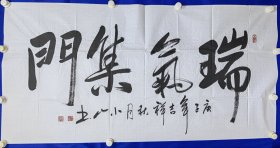 瑞氣集門
庚子年吉祥秋月小山书